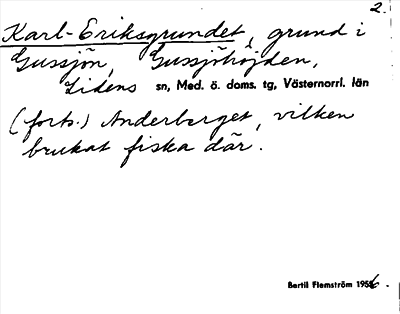 2.
Karl-Eriksgrundet, grund i
Gussjön, Gussjöhöjden,
Lidens sn, Med. ö. doms. tg, Västernorrl. län
(forts.) Anderberget, vilken
brukat fiska där.
Bertil Flemström 1956.